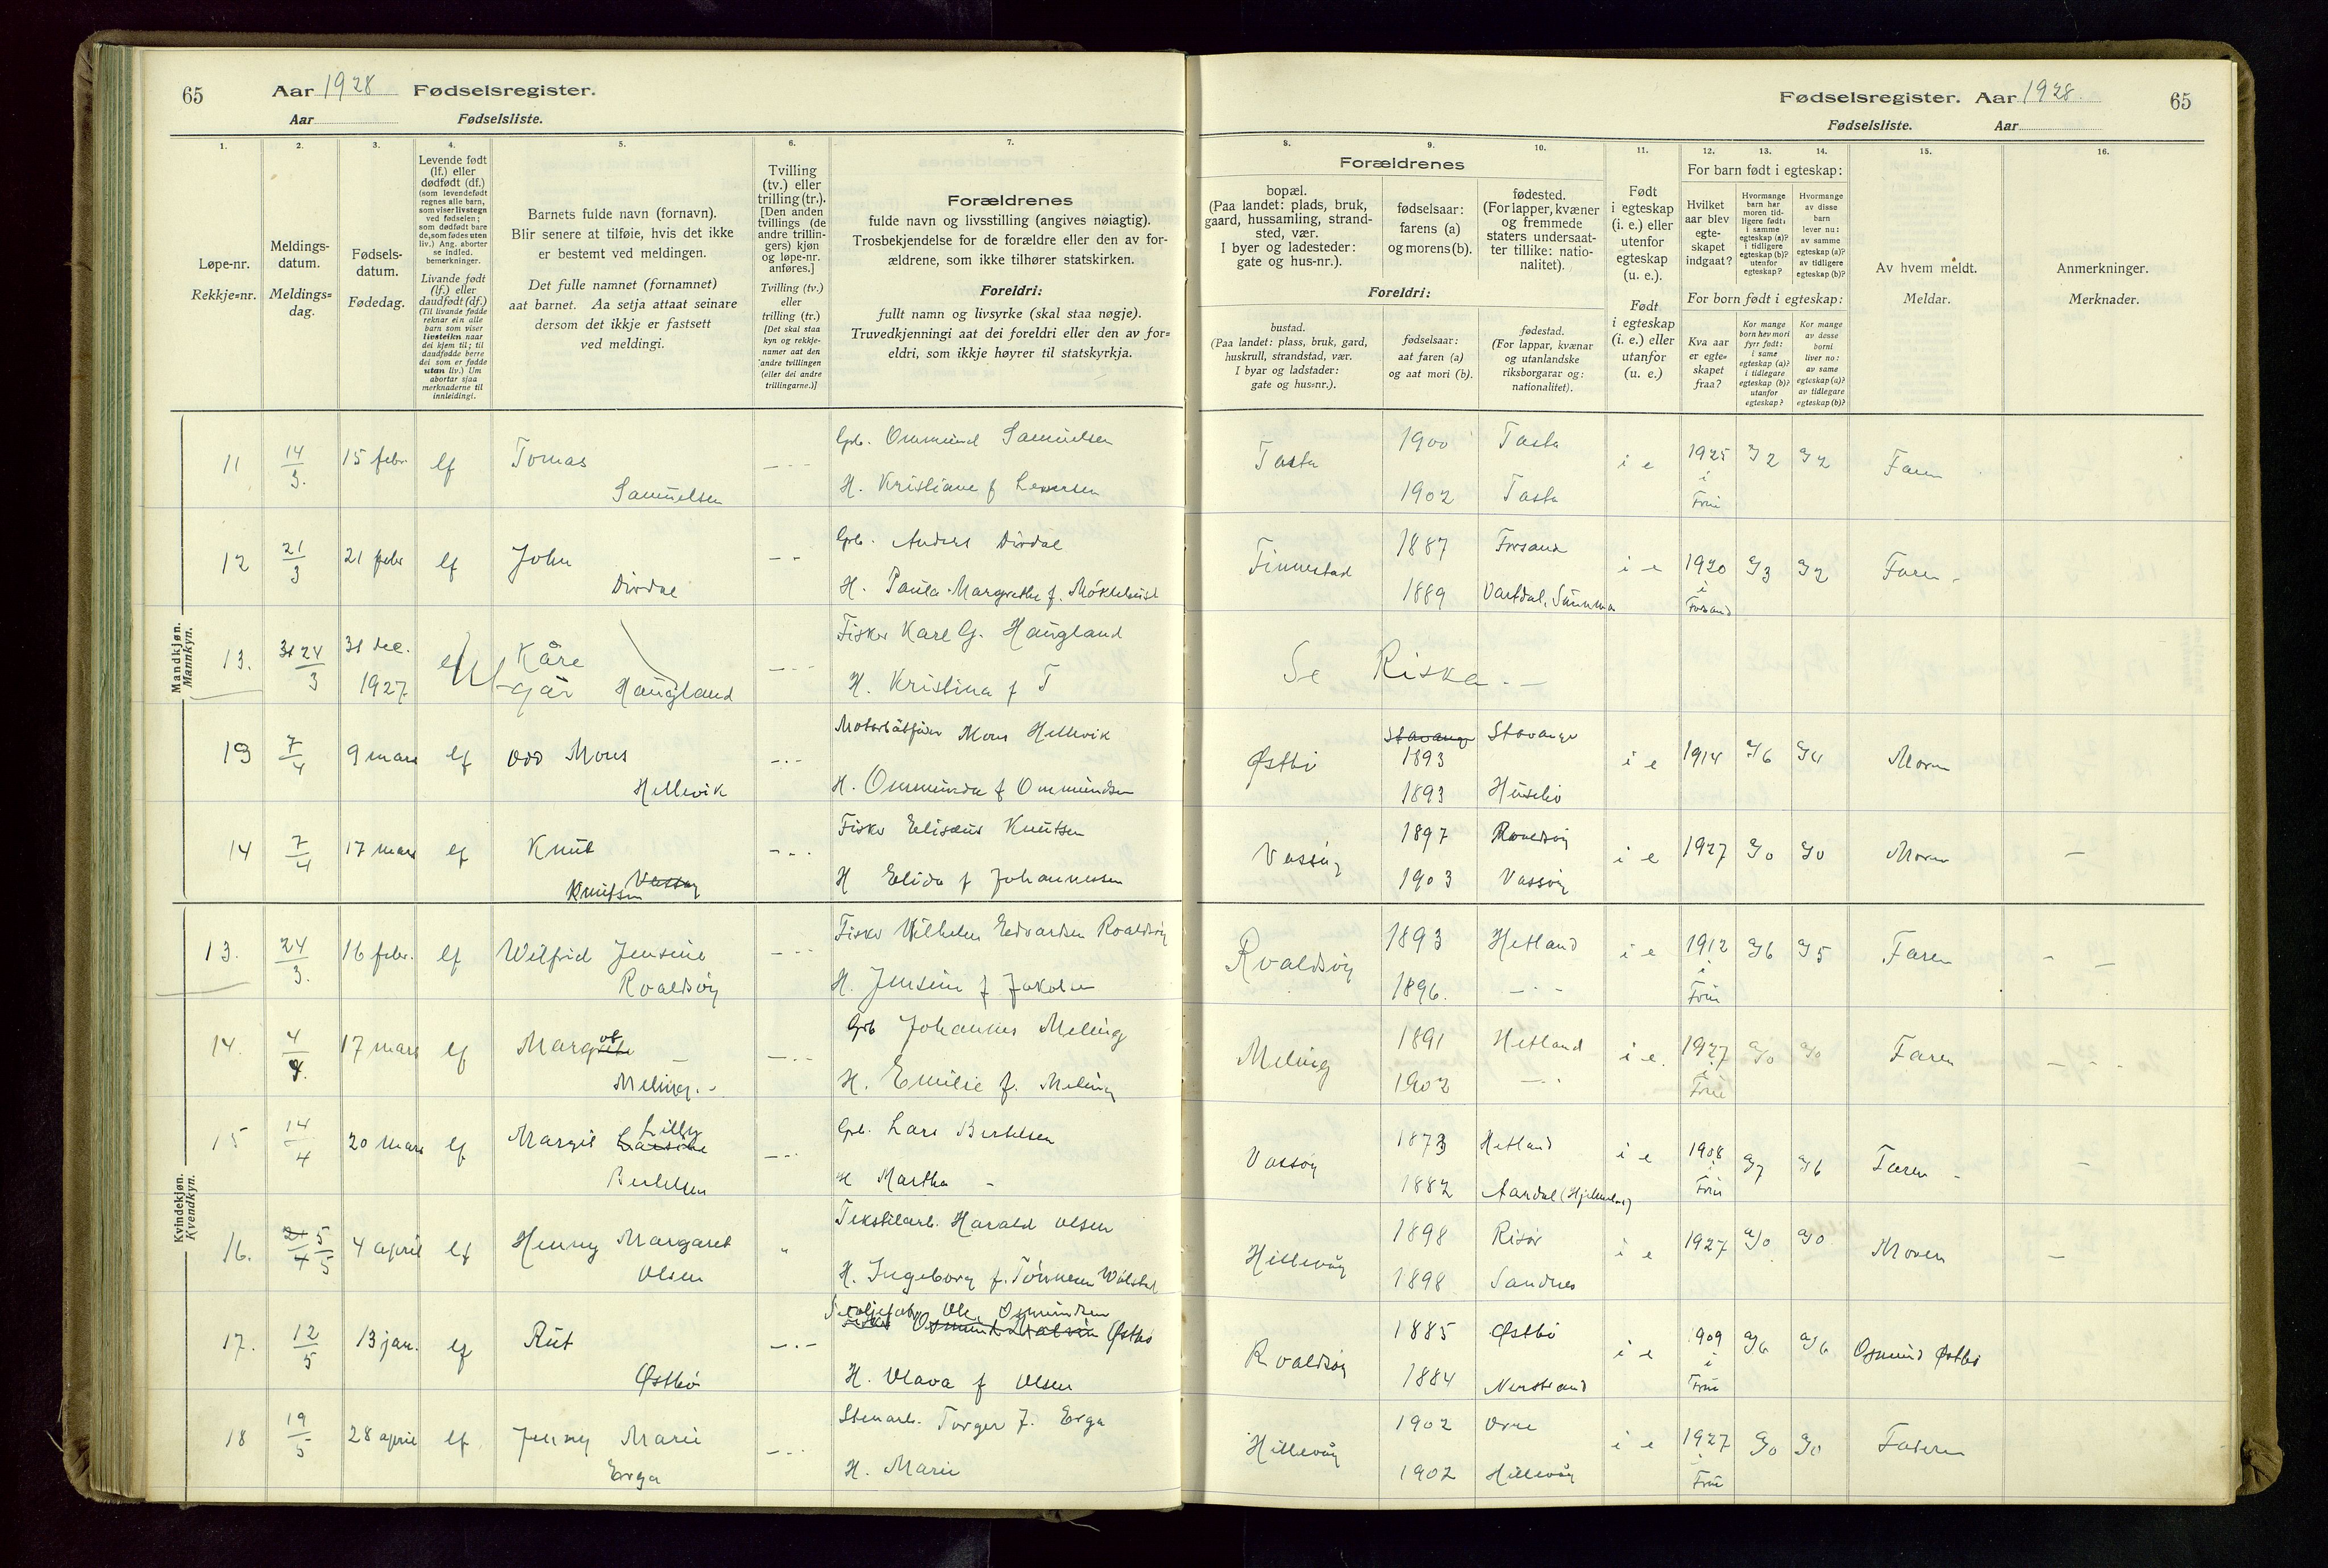 65 Aar 1928 Fødselsregister.
Aar Fødselsliste.
Fødselsregister. Aar 1928. 65
Fødselsliste. Aar
1. 2. 3. 4. 5. 6. 7.
Løpe-nr.
Rekkje=nr.
Meldings-
datum.
Meldings=
dag.
Fødsels-
datum.
Fødedag.
Levende født
(lf.) eller
dødfødt (df.)
(som levendefødt
regnes alle barn,
som viser livstegn
ved fødselen;
som dødfødt bare
de, som fødes uten
liv.) Ang. aborter
se indled.
bemerkninger.
Livande født
(lf.) eller
daudfødt (df.)
(Til livande fødde
reknar ein alle
barn som viser
livsteikn naar
dei kjem til; til
daudfødde berre
dei som er fødde
utan liv.) Um
abortar sjaa
merknaderne til
innleidingi.
Barnets fulde navn (fornavn).
Blir senere at tilføie, hvis det ikke
er bestemt ved meldingen.
Det fulle namnet (fornamnet)
aat barnet. Aa setja attaat seinare
dersom det ikkje er fastsett
ved meldingi.
Tvilling
(tv.) eller
trilling (tr.).
[Den anden
tvillings (de
andre trillin-
gers) kjøn
og løpe-nr.
anføres.]
Tvilling (tv.)
eller
trilling (tr.)
[Det skal staa
kyn og rekkje-
numer aat den
andre tvillingen
(eller dei andre
trillingarne.)]
Forældrenes
fulde navn og livsstilling (angives nøiagtig).
Trosbekjendelse for de forældre eller den av for-
ældrene, som ikke tilhører statskirken.
Foreldri:
fullt namn og livsyrke (skal staa nøgje).
Truvedkjenningi aat dei foreldri eller den av for=
eldri, som ikkje høyrer til statskyrkja.
8. 9. 10. 11. 12. 13. 14. 15. 16.
Forældrenes
bopæl.
(Paa landet: plads, bruk,
gaard, hussamling, strand-
sted, vær.
I byer og ladesteder:
gate og hus-nr.).
fødselsaar:
farens (a)
og morens (b).
fødested.
(For lapper, kvæner
og fremmede
staters undersaat-
ter tillike: natio-
nalitet).
Foreldri:
bustad.
(Paa landet: plass, bruk, gard,
huskrull, strandstad, vær.
I byar og ladstader:
gate og hus=nr.).
fødselsaar:
aat faren (a)
og aat mori (b).
fødestad.
(For lappar, kvænar
og utanlandske
riksborgarar og:
nationalitet).
Født
i egteskap
(i. e.) eller
utenfor
egteskap
(u. e.).
Født
i egteskap
(i. e.) eller
utanfor
(u. e.)
For barn født i egteskap:
Hvilket
aar blev
egte-
skapet
indgaat?
Hvormange
barn har
moren tid-
ligere født:
i samme
egteskap (a)?
i tidligere
egteskap (b)?
utenfor
egteskap?
Hvormange
av disse
barn
lever nu:
av samme
egteskap (a)?
av tidligere
egteskap (b)?
For born født i egteskap:
Kva aar
er egte-
skapet
fraa?
Kor mange
born hev mori
fyrr født:
i same
egteskap (a)?
i tidlegare
egteskap (b)?
utanfor
egteskap?
Kor mange
av desse
borni
liver no:
av same
egteskap (a)?
av tidlegare
egteskap (b)?
Av hvem meldt.
Meldar.
Anmerkninger.
Merknader.
Mandkjøn.
Mannkyn.
11 14/3. 15 febr. lf Tomas Samuelsen
Grb. Ommund Samuelsen
H. Kristiane f
Tasta 1900 Tasta i e 1925 i Frue a/2 a/2 Faren
1902 Tasta
12 21/3 21 febr lf John Dirdal
Grb. Anders Dirdal
H. Paula Margrethe f.
Finnestad 1887 Forsand i e 1920 i Forsand a/3 a/2 Faren
1889 Vartdal,
13. 24/3 31 dec. 1927 lf Kåre
Haugland
Fisker Karl G. Haugland
H. Kristina f T
Se Riska
13 7/4 9 mars lf Odd Mons Hellevik
Mons Hellevik
H. Ommunda f Ommundsen
Østbø Stavanger 1893 Stavanger i e 1914 a/6 a/4 Moren
1893 Husebø
14 7/4 17 mars lf Knut Vassøy
Knutsen
Fisker Elisæus Knutsen
H Elida f Johannessen
Vassøy 1897 Roaldsøy i e 1927 a/0 a/0 Moren
1903 Vassøy
Kvindekjøn.
Kvendkyn.
13. 24/3. 16 febr. lf Wilfrid Jensine Roaldsøy
Fisker Vilhelm Edvardsen Roaldsøy
H. Jensine f Jakobsen
Roaldsøy 1893 Hetland i e 1912 i Frue a/6 a/5 Faren
1896.
14. 4/4. 17 mars lf Meling.
Grb Johannes Meling
H. Emilie f. Meling
Meling 1891 Hetland i e. 1927 i Frue a/0 a/0 Faren
1902
15 14/4 20 mars lf Margit Lilly
Bertelsen
Grb. Lars Bertelsen
H Martha
Vassøy 1873 Hetland i e 1908 i Frue a/7 a/6 Faren
1882 Aardal (Hjelmeland)
16. 21/4 5/5 4 april lf Henny Margaret Olsen
Tekstilarb. Harald Olsen
H. Ingeborg f. Tønnesen
Hillevåg 1898 Risør i e 1927 a/0 a/0 Moren
1898 Sandnes
17. 12/5 13 jan. lf Rut Østbø
Ole Osmundsen
Østbø
H. Olava f Olsen
Roaldsøy 1885 Østbø i e 1909 i Frue a/6 a/6 Osmund Østbø
1884 Nerstrand
18 19/5 28 april lf Jenny Marie Erga
Stenarb. Torger J. Erga
H. Marie
Hillevåg 1902 Orre i e 1927 i Frue a/0 a/0 Faderen
1902 Hillevåg